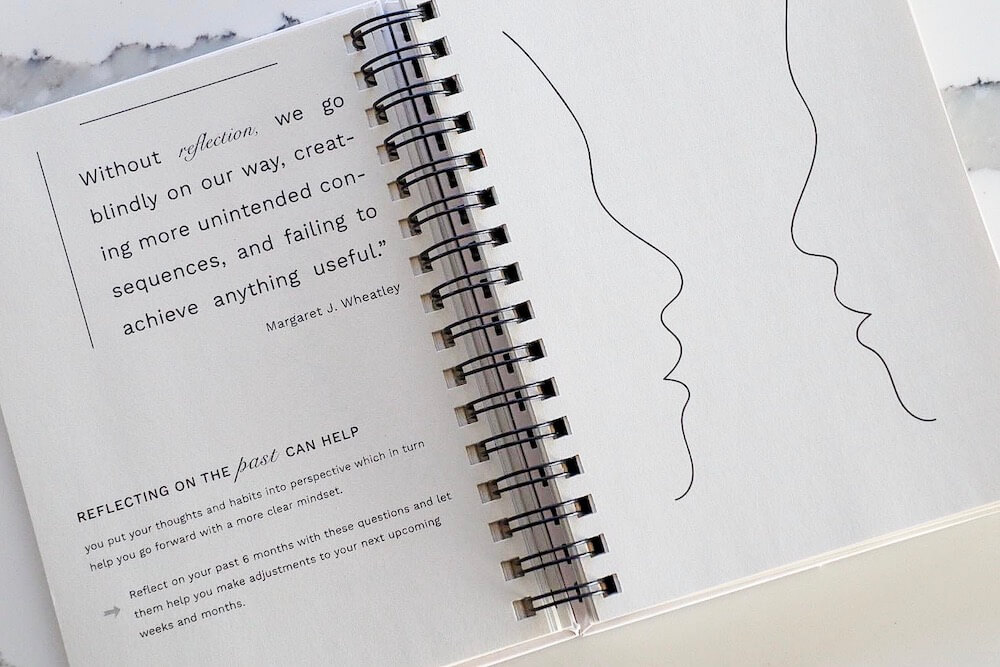 Without reflection, we go
blindly on our way, creat-
ing more unintended con-
sequences, and failing to
achieve anything useful.”
Margaret J. Wheatley
REFLECTING ON THE past CAN HELP
you put your thoughts and habits into perspective which in turn
help you go forward with a more clear mindset.
Reflect on your past 6 months with these questions and let
them help you make adjustments to your next upcoming
weeks and months.